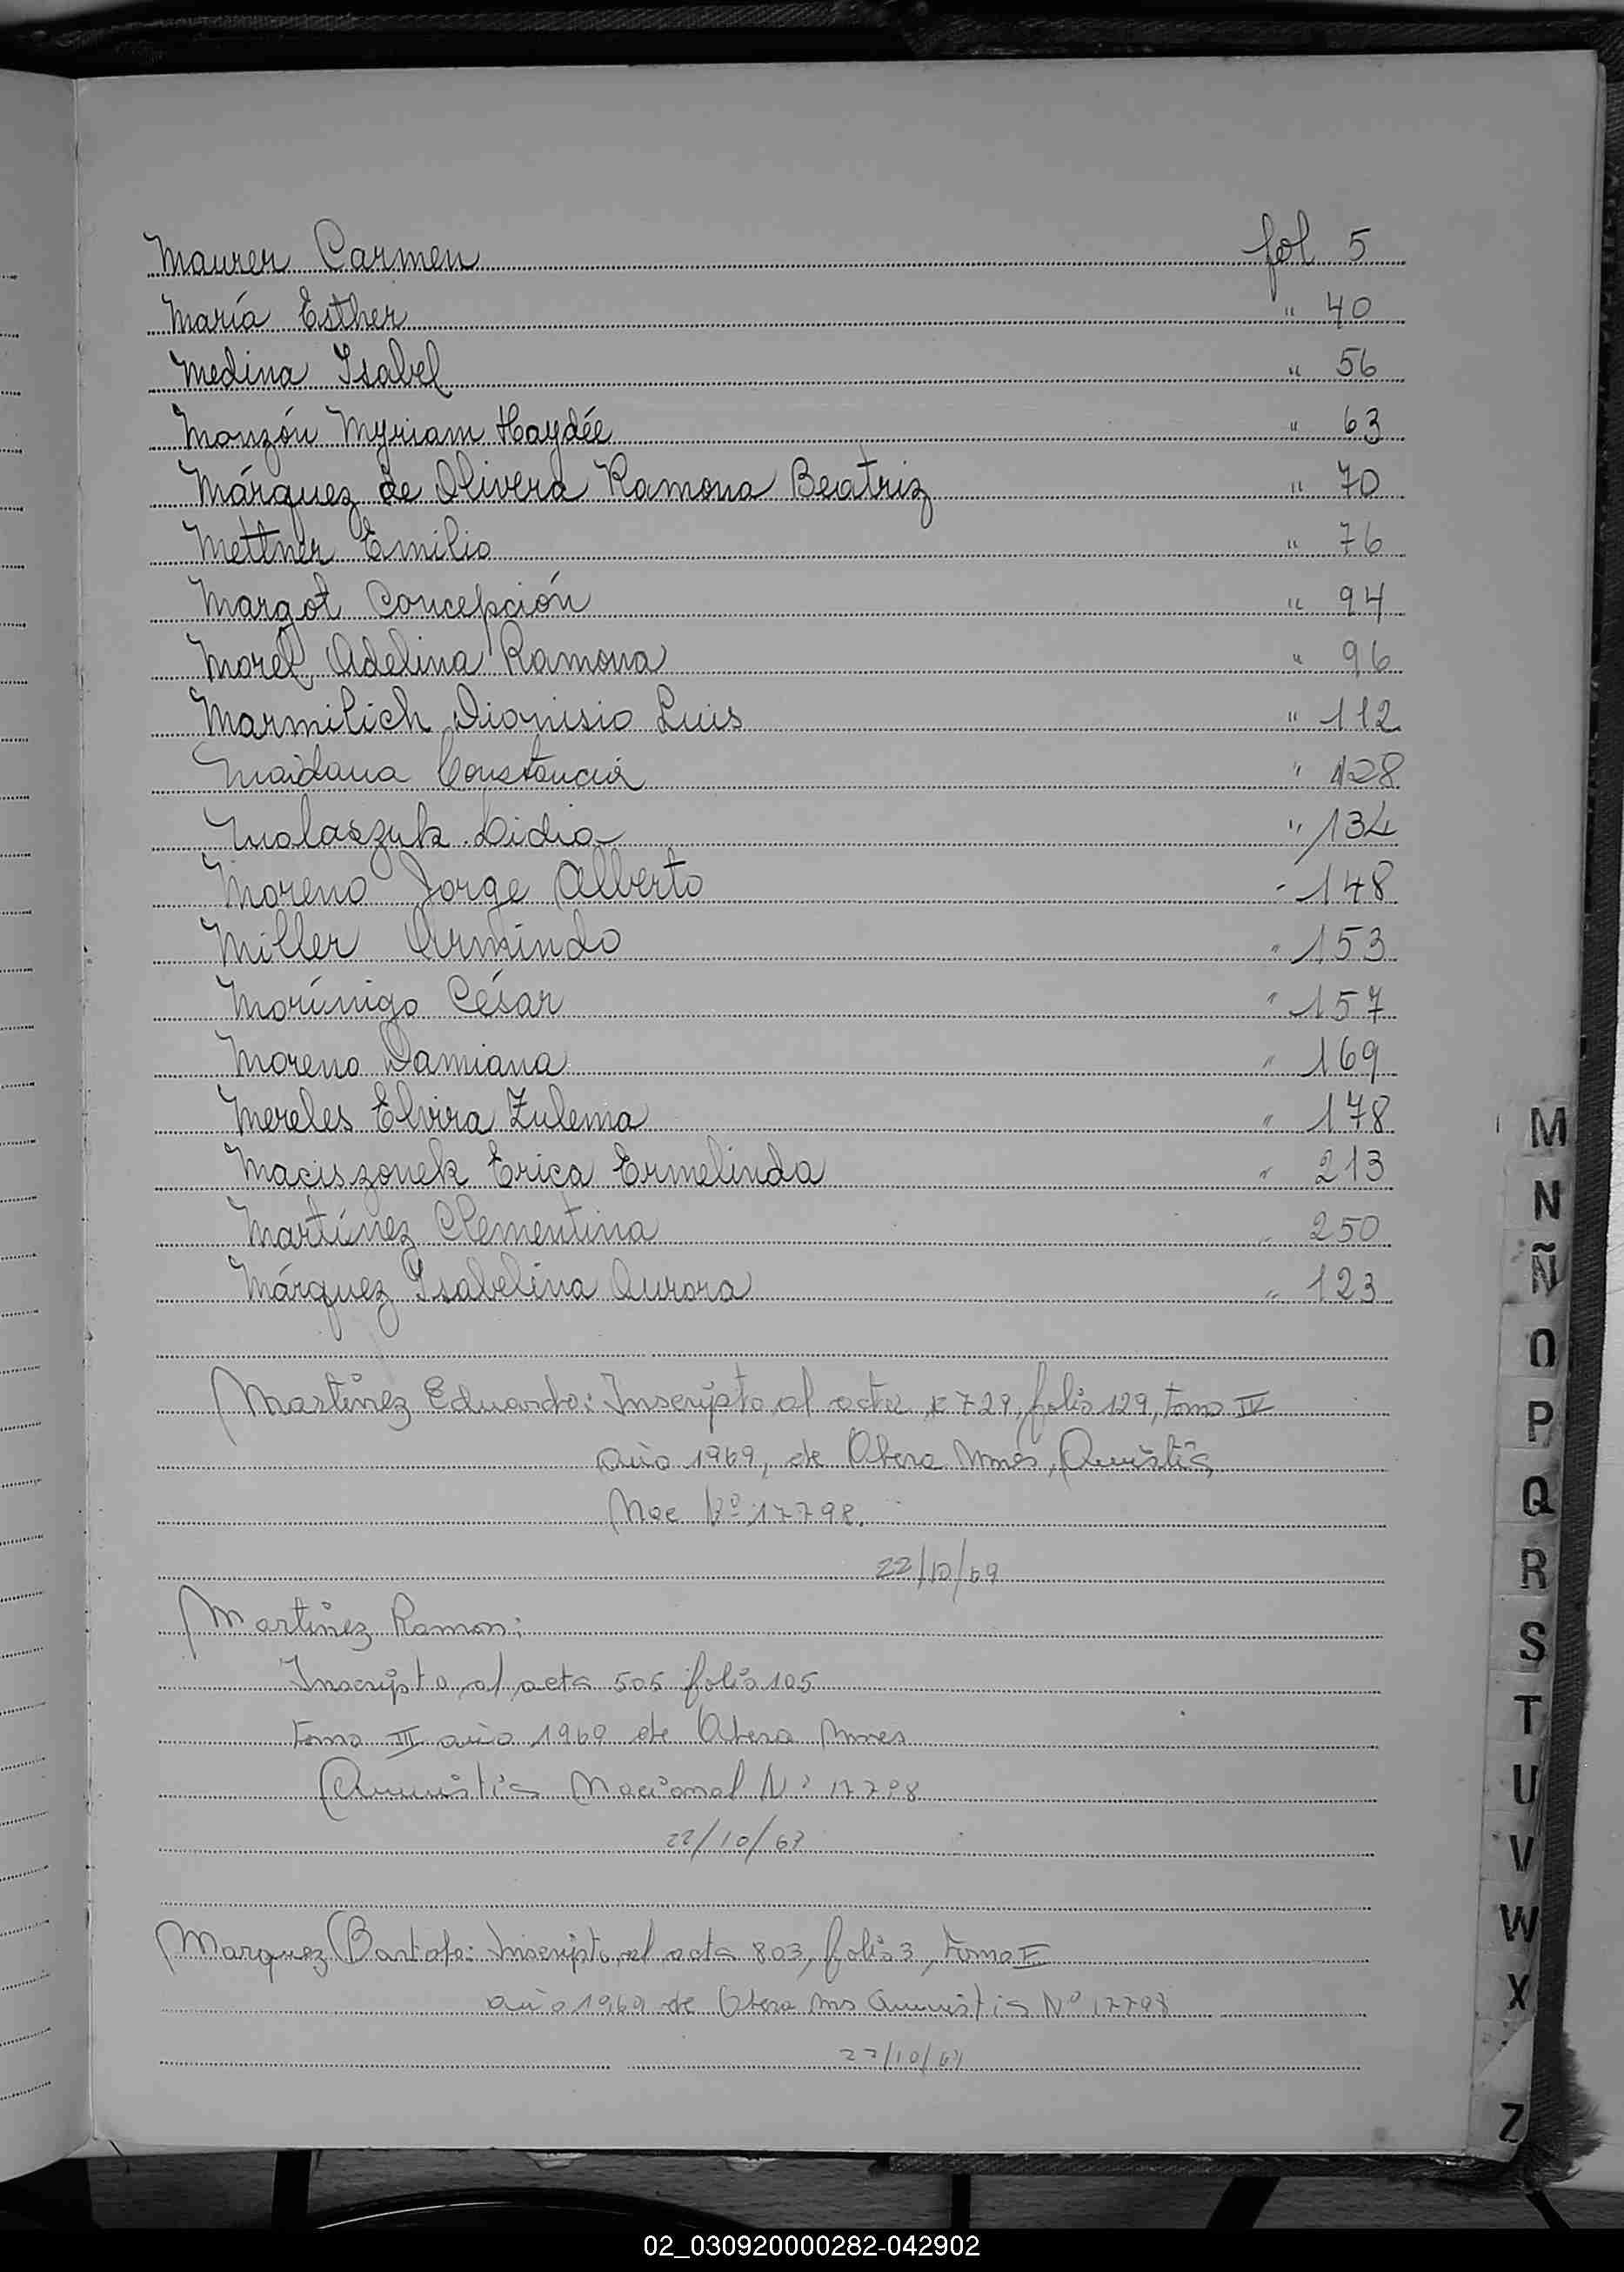 Maurer Carmen fol 5
María Esther " 40
Medina Isabel " 56
Monzón Myriam Haydée " 63
Márquez de Olivera Ramona Beatriz " 70
Mettner Emilio " 76
Margot Concepción " 94
Morel Adelina Ramona " 96
Marmilich Dionisio Luis " 112
Maidana Constancia " 128
Molaszuk Lidia " 134
Moreno Jorge Alberto " 148
Miller Armindo " 153
Morínigo César " 157
Moreno Damiana " 169
Mereles Elvira Zulema " 178
Maciszonek Erica Ermelinda " 213
Martínez Clementina " 250
Márquez Isabelina Aurora " 123
Martínez Eduardo: Inscripto al acta 729, folio 129, tomo IV
año 1969, de Obera Mnes, Amnistia
Nac Nº 17798.
22/10/69
Martínez Ramon:
Inscripto al acta 505 folio 105
tomo III año 1969 de Obera Mnes
Amnistia Nacional Nº 17798
22/10/69
Marquez : Inscripto al acta 803, folio 3, tomo
año 1969 de Obera Mns Amnistia Nº 17798
22/10/69
M
N
Ñ
O
P
Q
R
S
T
U
V
W
X
Z
02_030920000282-042902